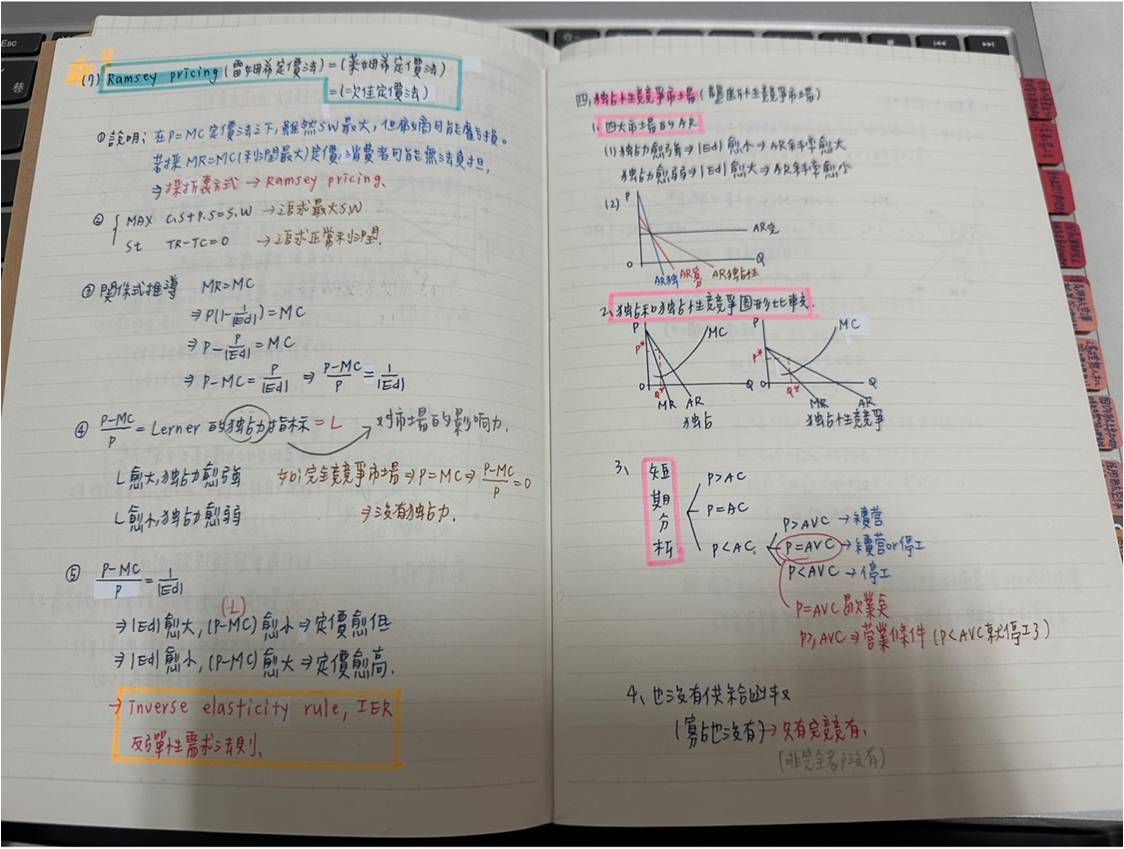 (7) Ramsey pricing (雷姆希定價法) = (萊姆希定價法)
= (次佳定價法)
① 說明: 在P=MC定價法之下,雖然SW最大,但廠商可能虧損。
若採 MR=MC(利潤最大)定價,消費者可能無法負擔,
⇒採折衷方式 → Ramsey pricing、
② MAX C.S+P.S=S.W →追求最大S.W
St TR-TC=0 →追求正常利潤、
③ 關係式推導 MR=MC
⇒ P(1-1/|Ed|) = MC
⇒ P-P/|Ed| = MC
⇒ P-MC=P/|Ed| ⇒ P-MC/P = 1/|Ed|
④ P-MC/P = Lerner 的独占力指标 = L 对市場的影响力.
L愈大,独占力愈強 如:完全競爭市場⇒P=MC⇒P-MC/P=0
L愈小,独占力愈弱 ⇒沒有独占力.
⑤ P-MC/P = 1/|Ed|
(L)
⇒|Ed|愈大, (P-MC)愈小⇒定價愈低
⇒|Ed|愈小, (P-MC)愈大⇒定價愈高.
→ inverse elasticity rule, IER
反彈性需求法則、
Esc
巷
四,独占性競爭市場(壟断性競爭市場)
1. 四大市場的AR
(1) 独占力愈強⇒|Ed|愈小⇒AR斜率愈大
独占力愈弱⇒|Ed|愈大⇒AR斜率愈小
(2) P
AR完
O Q
AR独 AR寡 AR独占性
2、独占和独占性競爭圖形比較.
P MC P MC
P* P*
O Q* Q O Q* Q
MR AR MR AR
独占 独占性競爭
3、短期分析
P>AC
P=AC
P<AC
P>AVC →續营
P=AVC →續营or停工
P<AVC →停工
P=AVC歇業点
P≥AVC⇒营業條件(P<AVC就停工了)
4、也沒有供給函数
(寡占也沒有)→只有完競有、
(非完全者都沒有)